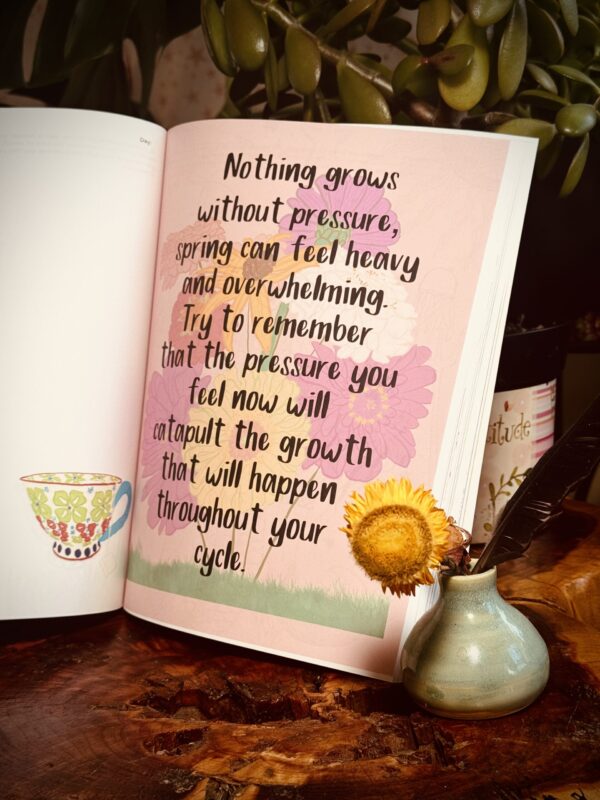 Nothing grows
without pressure,
spring can feel heavy
and overwhelming.
Try to remember
that the pressure you
feel now will
catapult the growth
that will happen
throughout your
cycle.